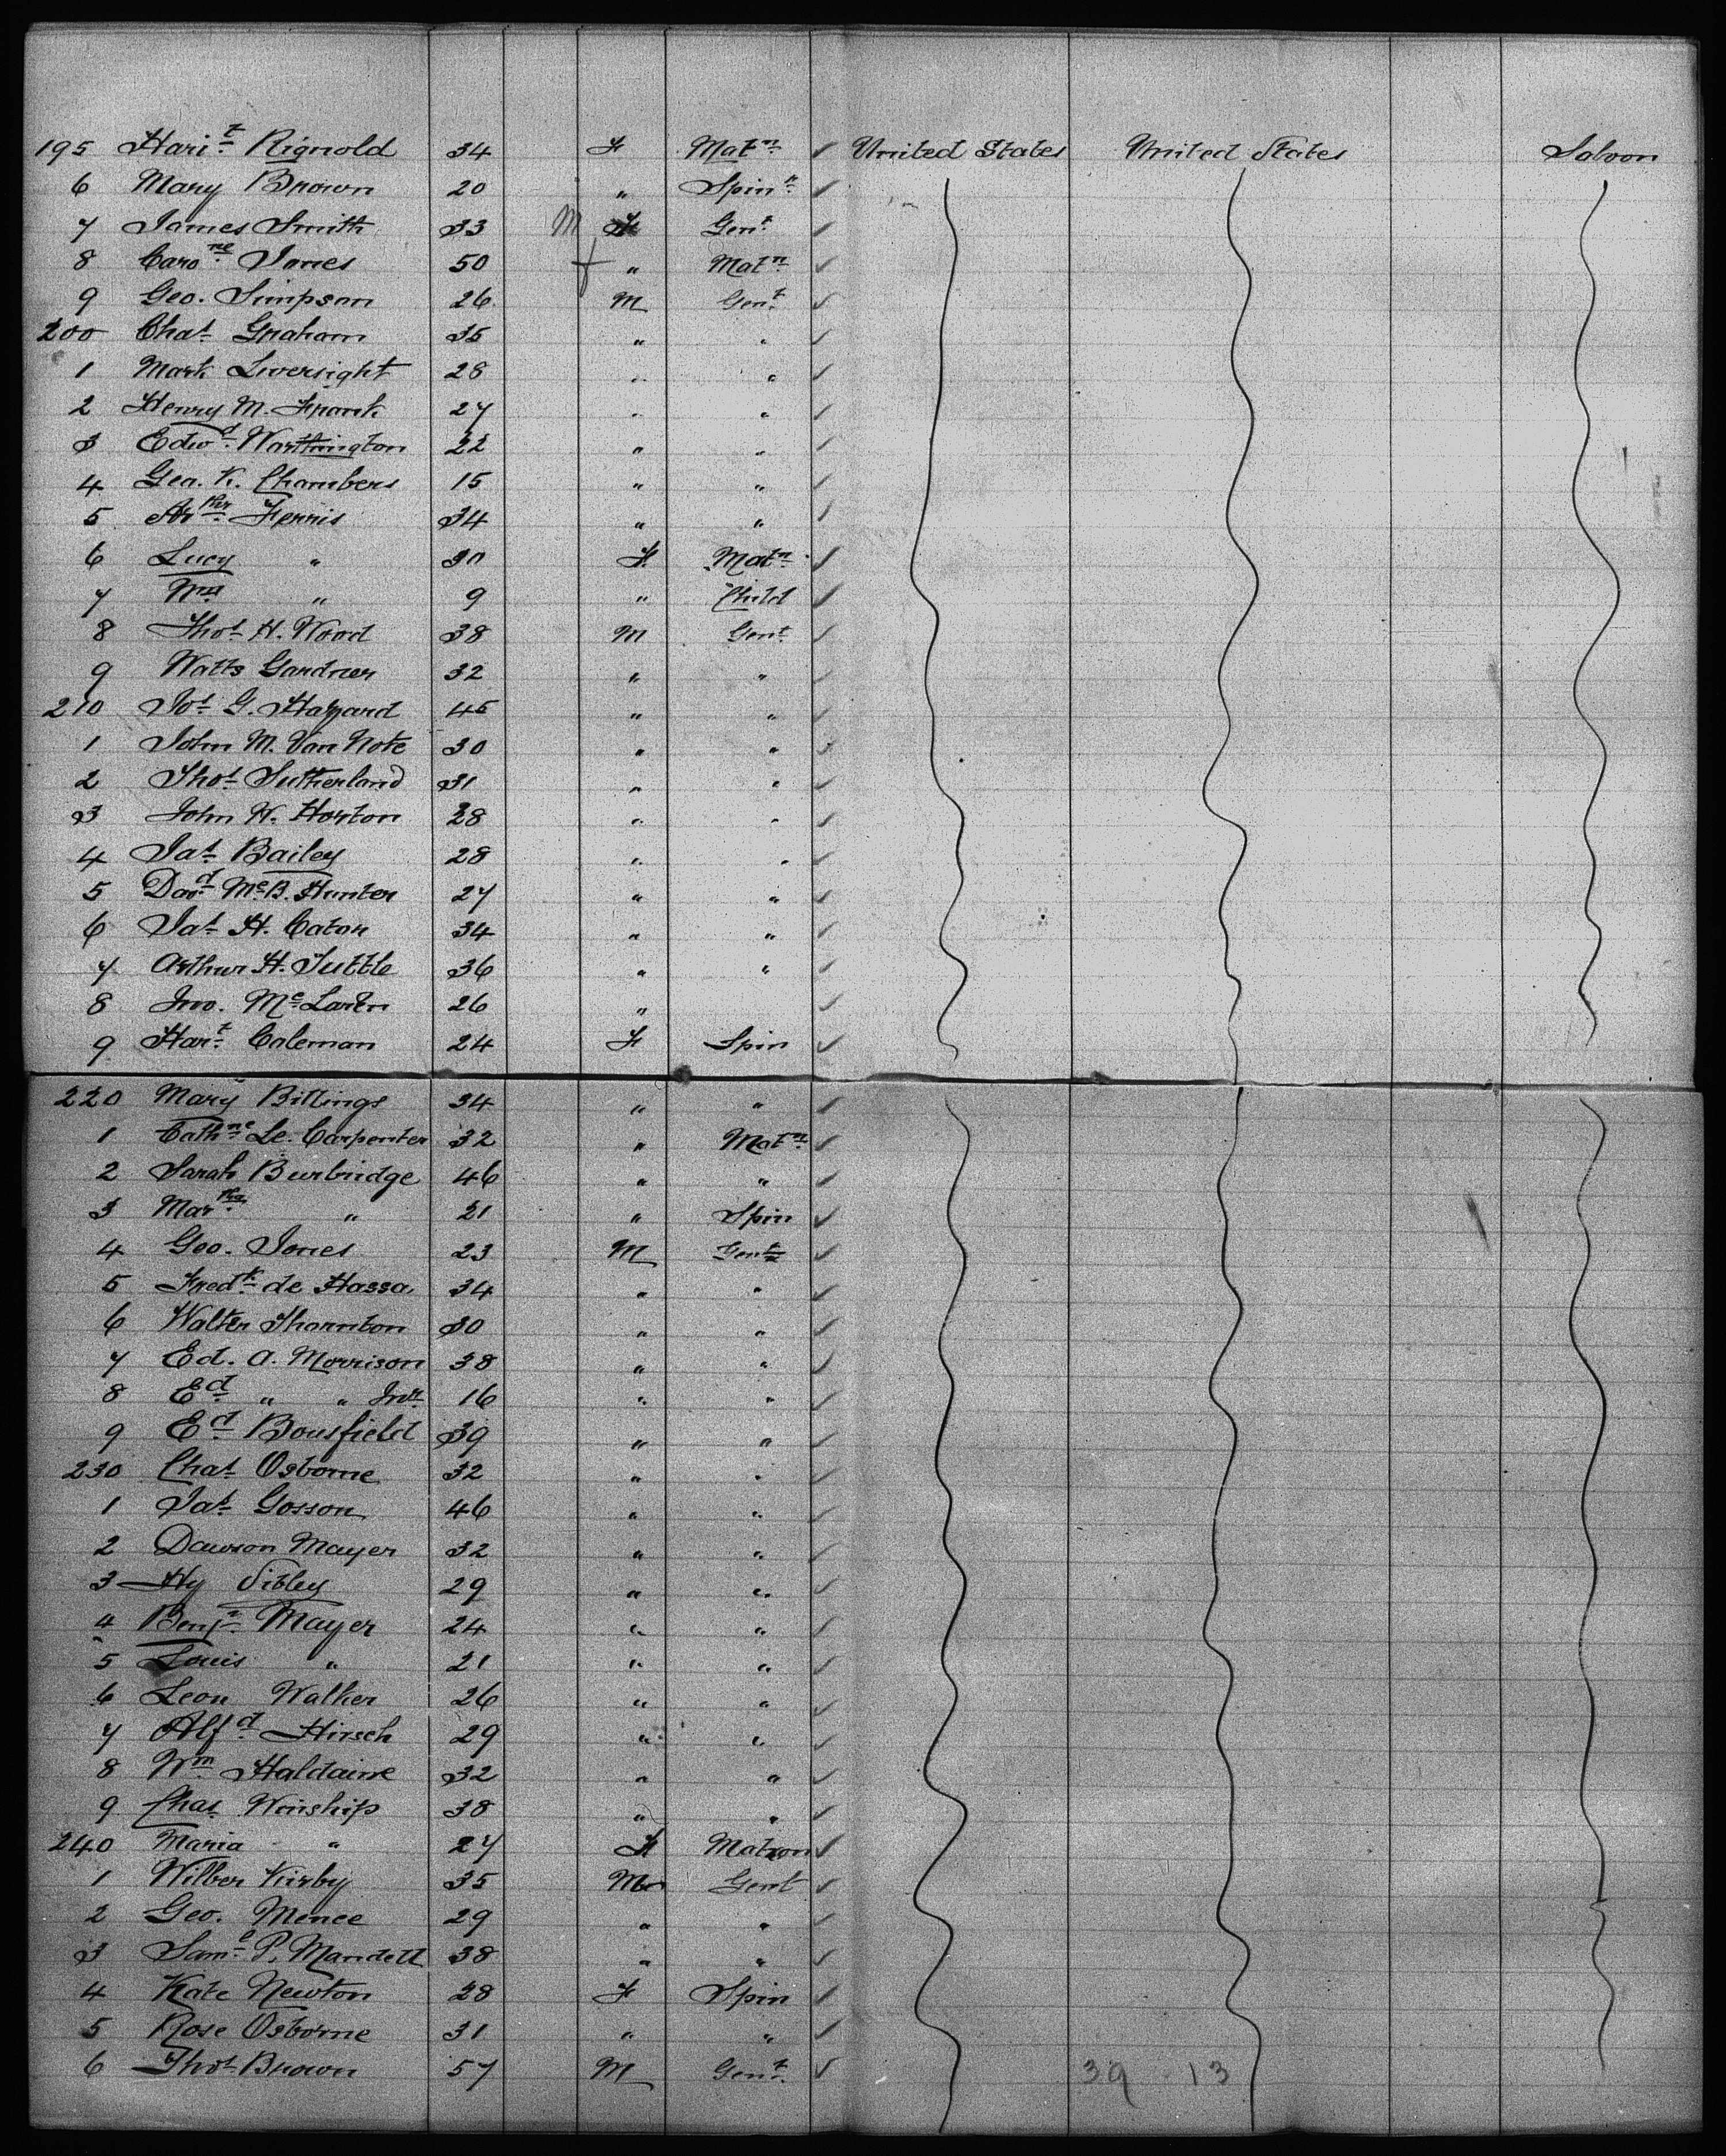 195 Hari.t Rignold 34 F Mat.n ✓ United States United States Saloon
6 Mary Brown 20 " Spin.r ✓
7 James Smith 33 M F Gen.t ✓
8 Caro.ne Jones 50 + " Mat.n ✓
9 Geo. Simpson 26 M Gen.t ✓
200 Chas Graham 35 " " ✓
1 Mark Liversight 28 " " ✓
2 Henry M. Frank 27 " " ✓
3 Edw.d Warthington 22 " " ✓
4 Geo. K. Chambers 15 " " ✓
5 Ar.thr Ferris 34 " " ✓
6 Lucy " 30 F Mat.n ✓
7 " 9 " Child ✓
8 Thos H. Wood 38 M Gen.t ✓
9 Watts Gardner 32 " " ✓
210 Jos G. Hazard 45 " " ✓
1 John M. Van Note 30 " " ✓
2 Thos Sutherland 31 " " ✓
3 John W. Horton 28 " " ✓
4 Jas Bailey 28 " " ✓
5 Dav.d McB. Hunter 27 " " ✓
6 Jas H. Caton 34 " " ✓
7 Arthur H. Tuttle 36 " " ✓
8 Jno. McLaren 26 " ✓
9 Har.t Coleman 24 F Spin ✓
220 Mary Billings 34 " " ✓
1 Cath.ne Le. Carpenter 32 " Mat.n ✓
2 Sarah Burbridge 46 " " ✓
3 Mar.tha " 21 " Spin ✓
4 Geo. Jones 23 M Gent ✓
5 Fred.k de Hassa 34 " " ✓
6 Walter Thornton 30 " " ✓
7 Ed. A. Morrison 38 " " ✓
8 Ed " " Jnr 16 " " ✓
9 Ed Bousfield 39 " " ✓
230 Chas Osborne 32 " " ✓
1 Jas Gosson 46 " " ✓
2 Dawson Mayer 32 " " ✓
3 Hy Sibley 29 " " ✓
4 Benj.n Mayer 24 " " ✓
5 Louis " 21 " " ✓
6 Leon Walker 26 " " ✓
7 Alf.d Hirsch 29 " " ✓
8 Wm Haldaine 32 " " ✓
9 Chas Winship 38 " " ✓
240 Maria " 27 F Matron ✓
1 Wilber Kirby 35 M Gent ✓
2 Geo. Mence 29 " " ✓
3 Sam.l P. Mandell 38 " " ✓
4 Kate Newton 28 F Spin ✓
5 Rose Osborne 31 " " ✓
6 Thos Brown 57 M Gen.t ✓ 39 13